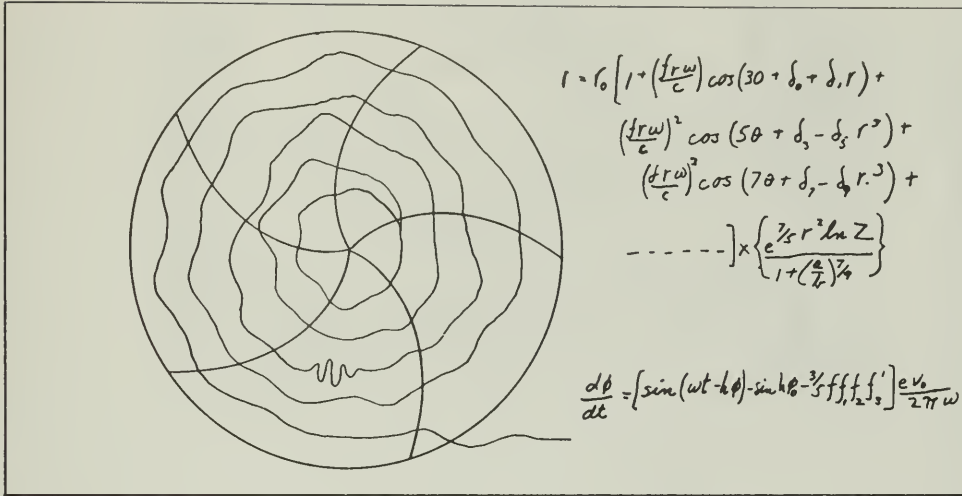 r = r₀ [ 1 + (frω/c) cos (3θ + δ₀ + δ₁ r) +
(frω/c)² cos (5θ + δ₃ - δ₅ r³) +
(frω/c)³ cos (7θ + δ₇ - δ₉ r.³) +
- - - - - - - ] × { e^7/5 r² ln Z / 1 + (a/b)^7/9 }
dφ/dt = [ sin (ωt - hφ) - sin hφ₀ - 3/5 f f₁ f₂ f₃' ] e v₀ / 2π ω